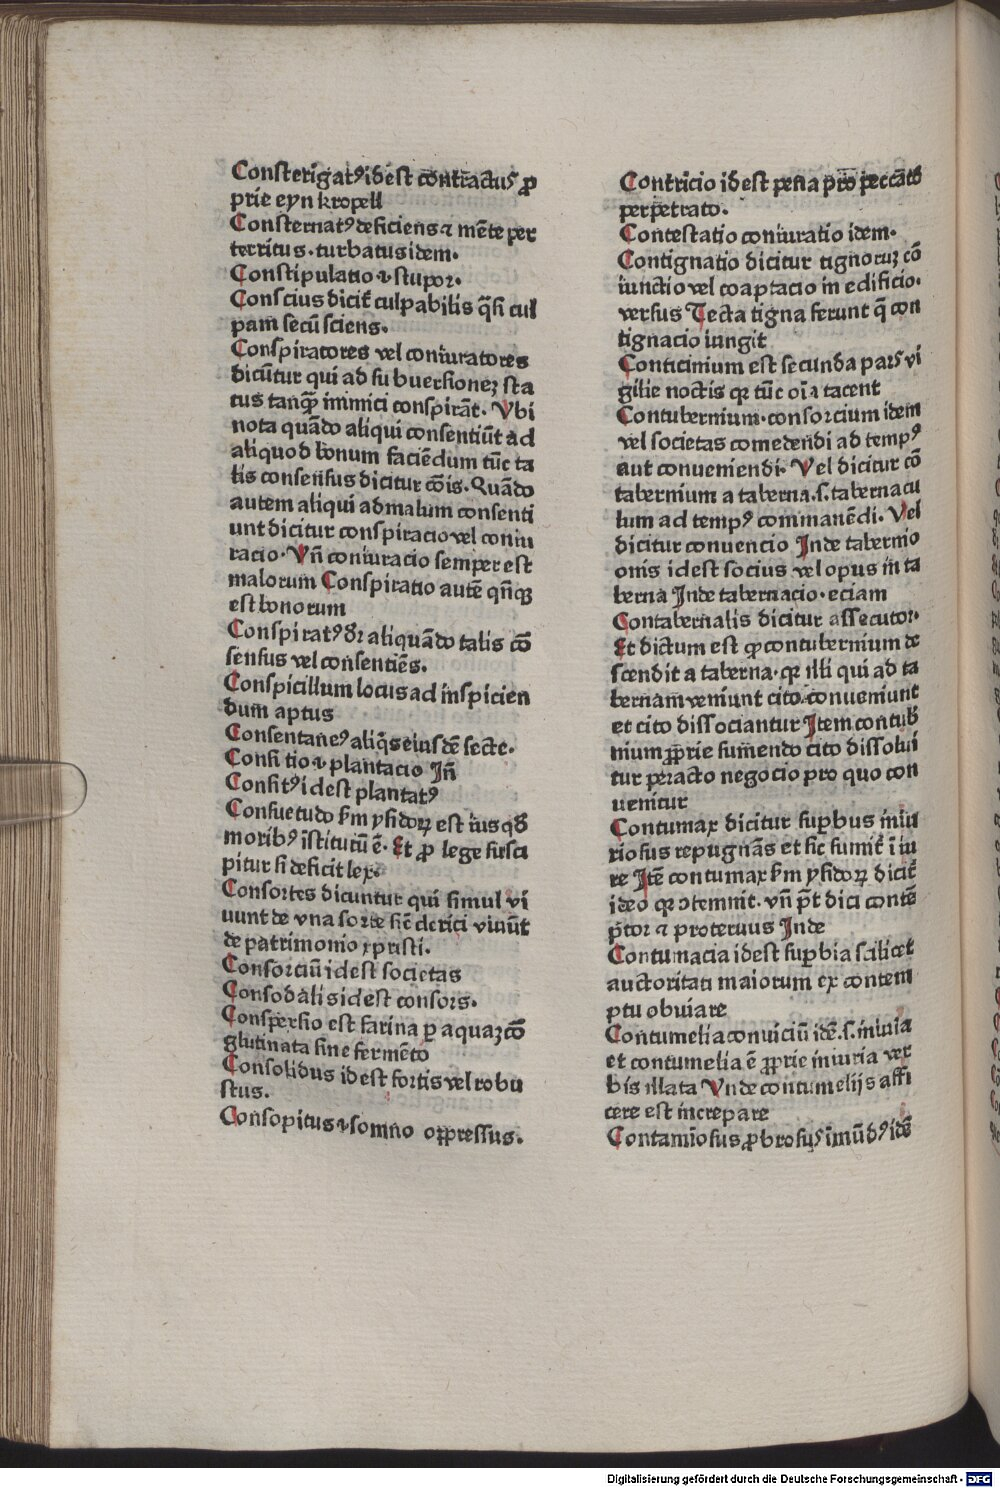 Consterigatꝰ id est contractuſ ꝓ
prie eyn kropell
Consternatꝰ deficiens ⁊ mēte per
territus·turbatus idem.
Constipulatio ⁊ stupor.
Conscius dicit̄ culpabilis q̄ſi cul
pam secū sciens.
Conspiratores vel coniuratores
dicūtur qui ad subuersioneꝫ sta
tus tanqꝫ inimici conspirāt. Vbi
nota quādo aliqui consentiūt ad
aliquod bonum faciēdum tūc ta
lis consensus dicitur cōis. Quādo
autem aliqui ad malum consenti
unt dicitur conspiracio vel coniu
racio. Vn̄ coniuracio semper est
malorum Conspiratio autē qn̄qꝫ
est bonorum
Conspiratꝰ dr̄ aliquādo talis cō
sensus vel consentiēs.
Conspicillum locus ad inspicien
dum aptus
Consentaneꝰ aliq̄s eiusdē secte.
Consitio ⁊ plantacio Jn̄
Consitꝰ id est plantatꝰ
Consuetudo ẜm ysidoꝝ est ius qd̄
moribꝰ īstitutū ē. Et ꝓ lege susci
pitur si deficit lex.
Consortes dicuntur qui simul vi
uunt de vna sorte sic̄ clerici viuūt
de patrimonio xpristi.
Consorciū id est societas
Consodalis id est consors.
Conspersio est farina ꝑ aquaꝫ cō
glutinata sine fermēto
Consolidus id est fortis vel robu
stus.
Consopitus ⁊ somno oppressus.
Contricio id est pena pro peccato
perpetrato.
Contestatio coniuratio idem.
Contignatio dicitur tignoruꝫ cō
iunctio vel coaptacio in edificio.
versus Tecta tigna ferunt q̄ con
tignacio iungit
Conticinium est secunda pars vi
gilie noctis qꝛ tūc oīa tacent
Contubernium·consorcium idem
vel societas comedendi ad tempꝰ
aut conueniendi. Vel dicitur cō
tabernium a taberna.s.tabernacu
lum ad tempꝰ commanēdi. Vel
dicitur conuencio Jnde tabernio
onis id est socius vel opus in ta
berna Jnde tabernacio·eciam
Contabernalis dicitur assecutor.
Et dictum est ꝙ contubernium de
scendit a taberna·qꝛ illi qui ad ta
bernam veniunt cito conueniunt
et cito dissociantur Jtem contub̄
nium ꝓprie sumendo cito dissolui
tur peracto negocio pro quo con
uenitur
Contumax dicitur suꝑbus iniu
riosus repugnās et sic sumit̄ ī iu
re Jtē contumax ẜm ysidoꝝ dicit̄
ideo qꝛ ꝯtemnit. vn̄ pt̄ dici contē
ptor ⁊ proteruus Jnde
Contumacia id est suꝑbia scilicet
auctoritati maiorum ex contem
ptu obuiare
Contumelia conuiciū idē.s.iniuia
et contumelia ē ꝓprie iniuria ver
bis illata Vnde contumelijs affi
cere est increpare
Contamiosus ꝓbrosuꝰ īmūdꝰ idē
Digitalisierung gefördert durch die Deutsche Forschungsgemeinschaft - DFG